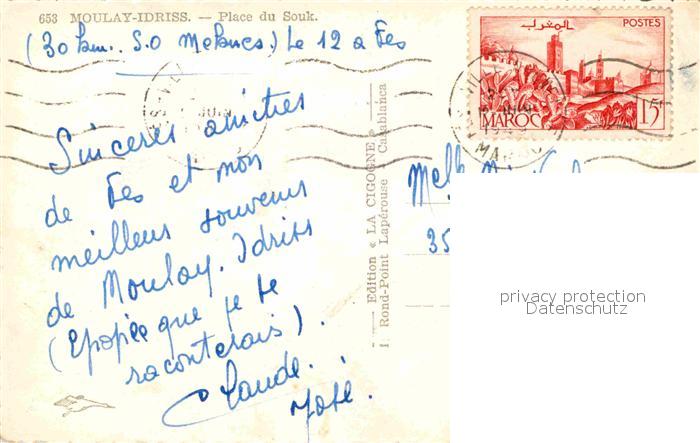 653 MOULAY-IDRISS. — Place du Souk.
(30 km. S.O Meknes.) Le 12 a Fes
Sinceres amities
de Fes et mon
meilleur souvenir
de Moulay. Idriss
(Epopée que je te
raconterais).
Claude.
José.
Edition « LA CIGOGNE »
1 Rond-Point Lapérouse Casablanca
المغرب
POSTES
MAROC
15F
35
privacy protection
Datenschutz